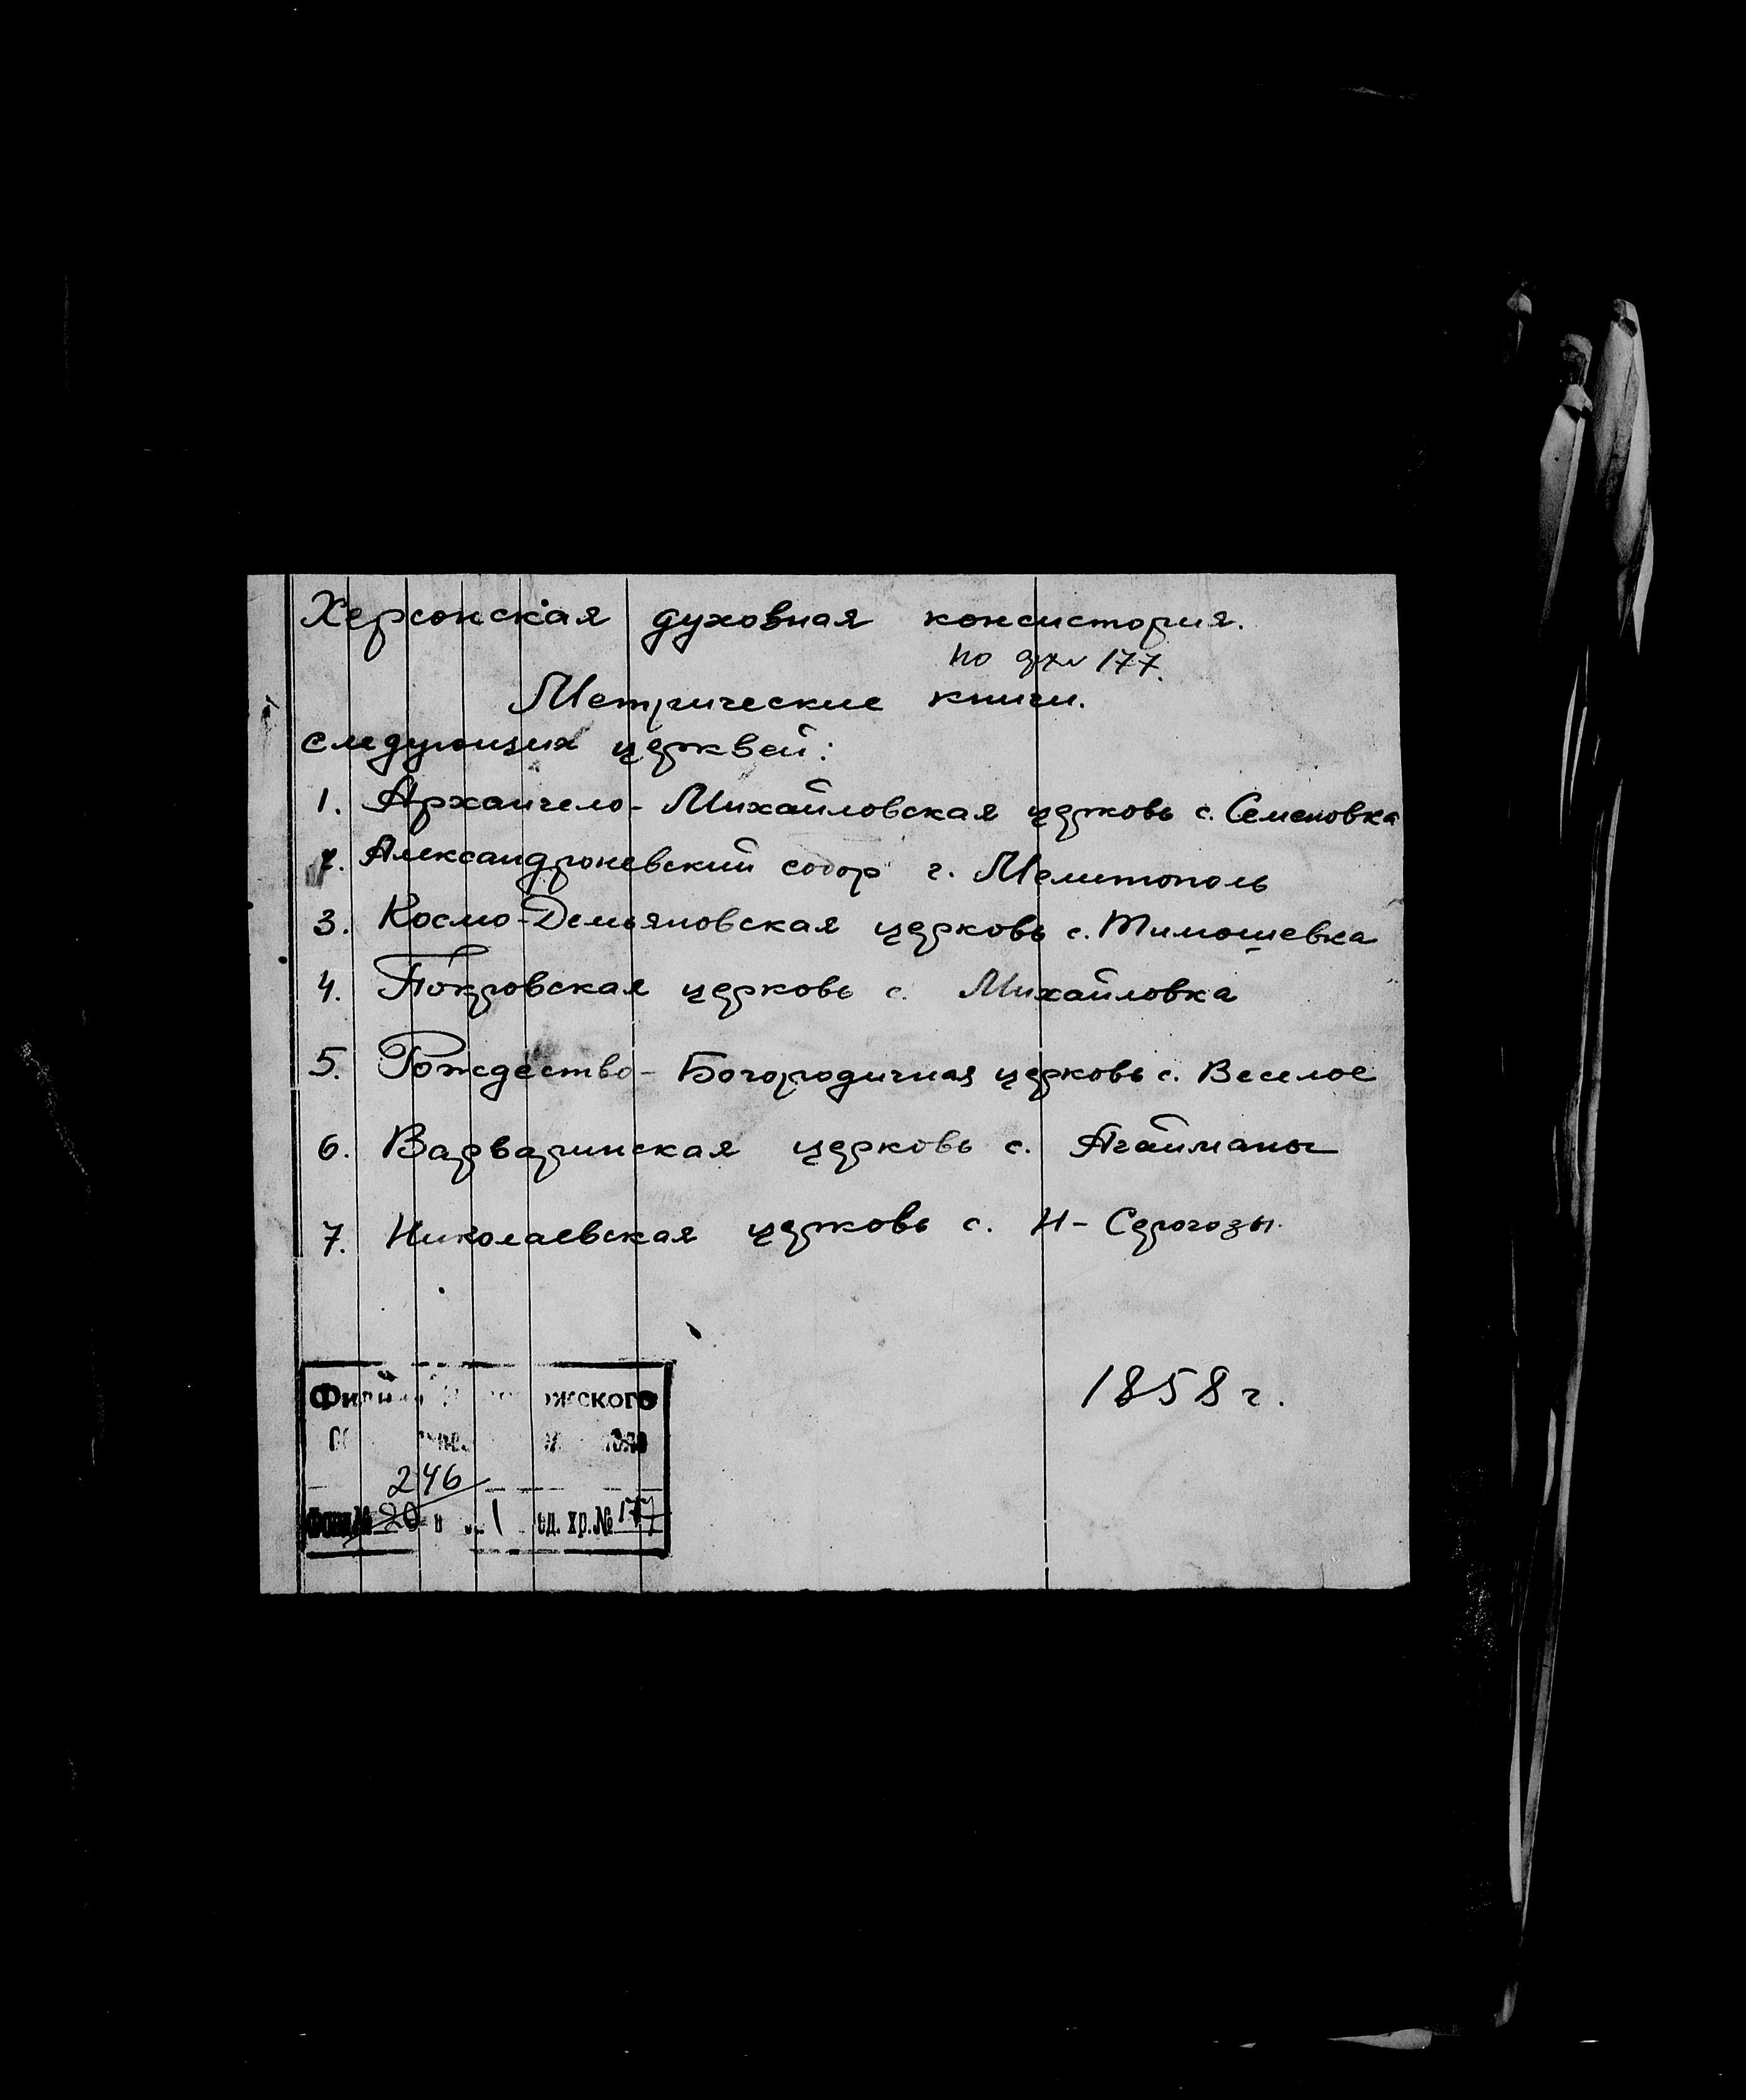 Херсонская духовная консистория.
по 177.
Метрические книги.
следующих церквей:
1. Архангело-Михайловская церковь с. Семеновка
2. Александроневский собор г. Мелитополь
3. Космо-Демьяновская церковь с. Тимошевка
4. Покровская церковь с. Михайловка
5. Рождество-Богородичная церковь с. Веселое
6. Варваринская церковь с. Агайманы
7. Николаевская церковь с. Н-Серогозы
1858 г.
246
Фонд № 20 1 ед. хр. № 177